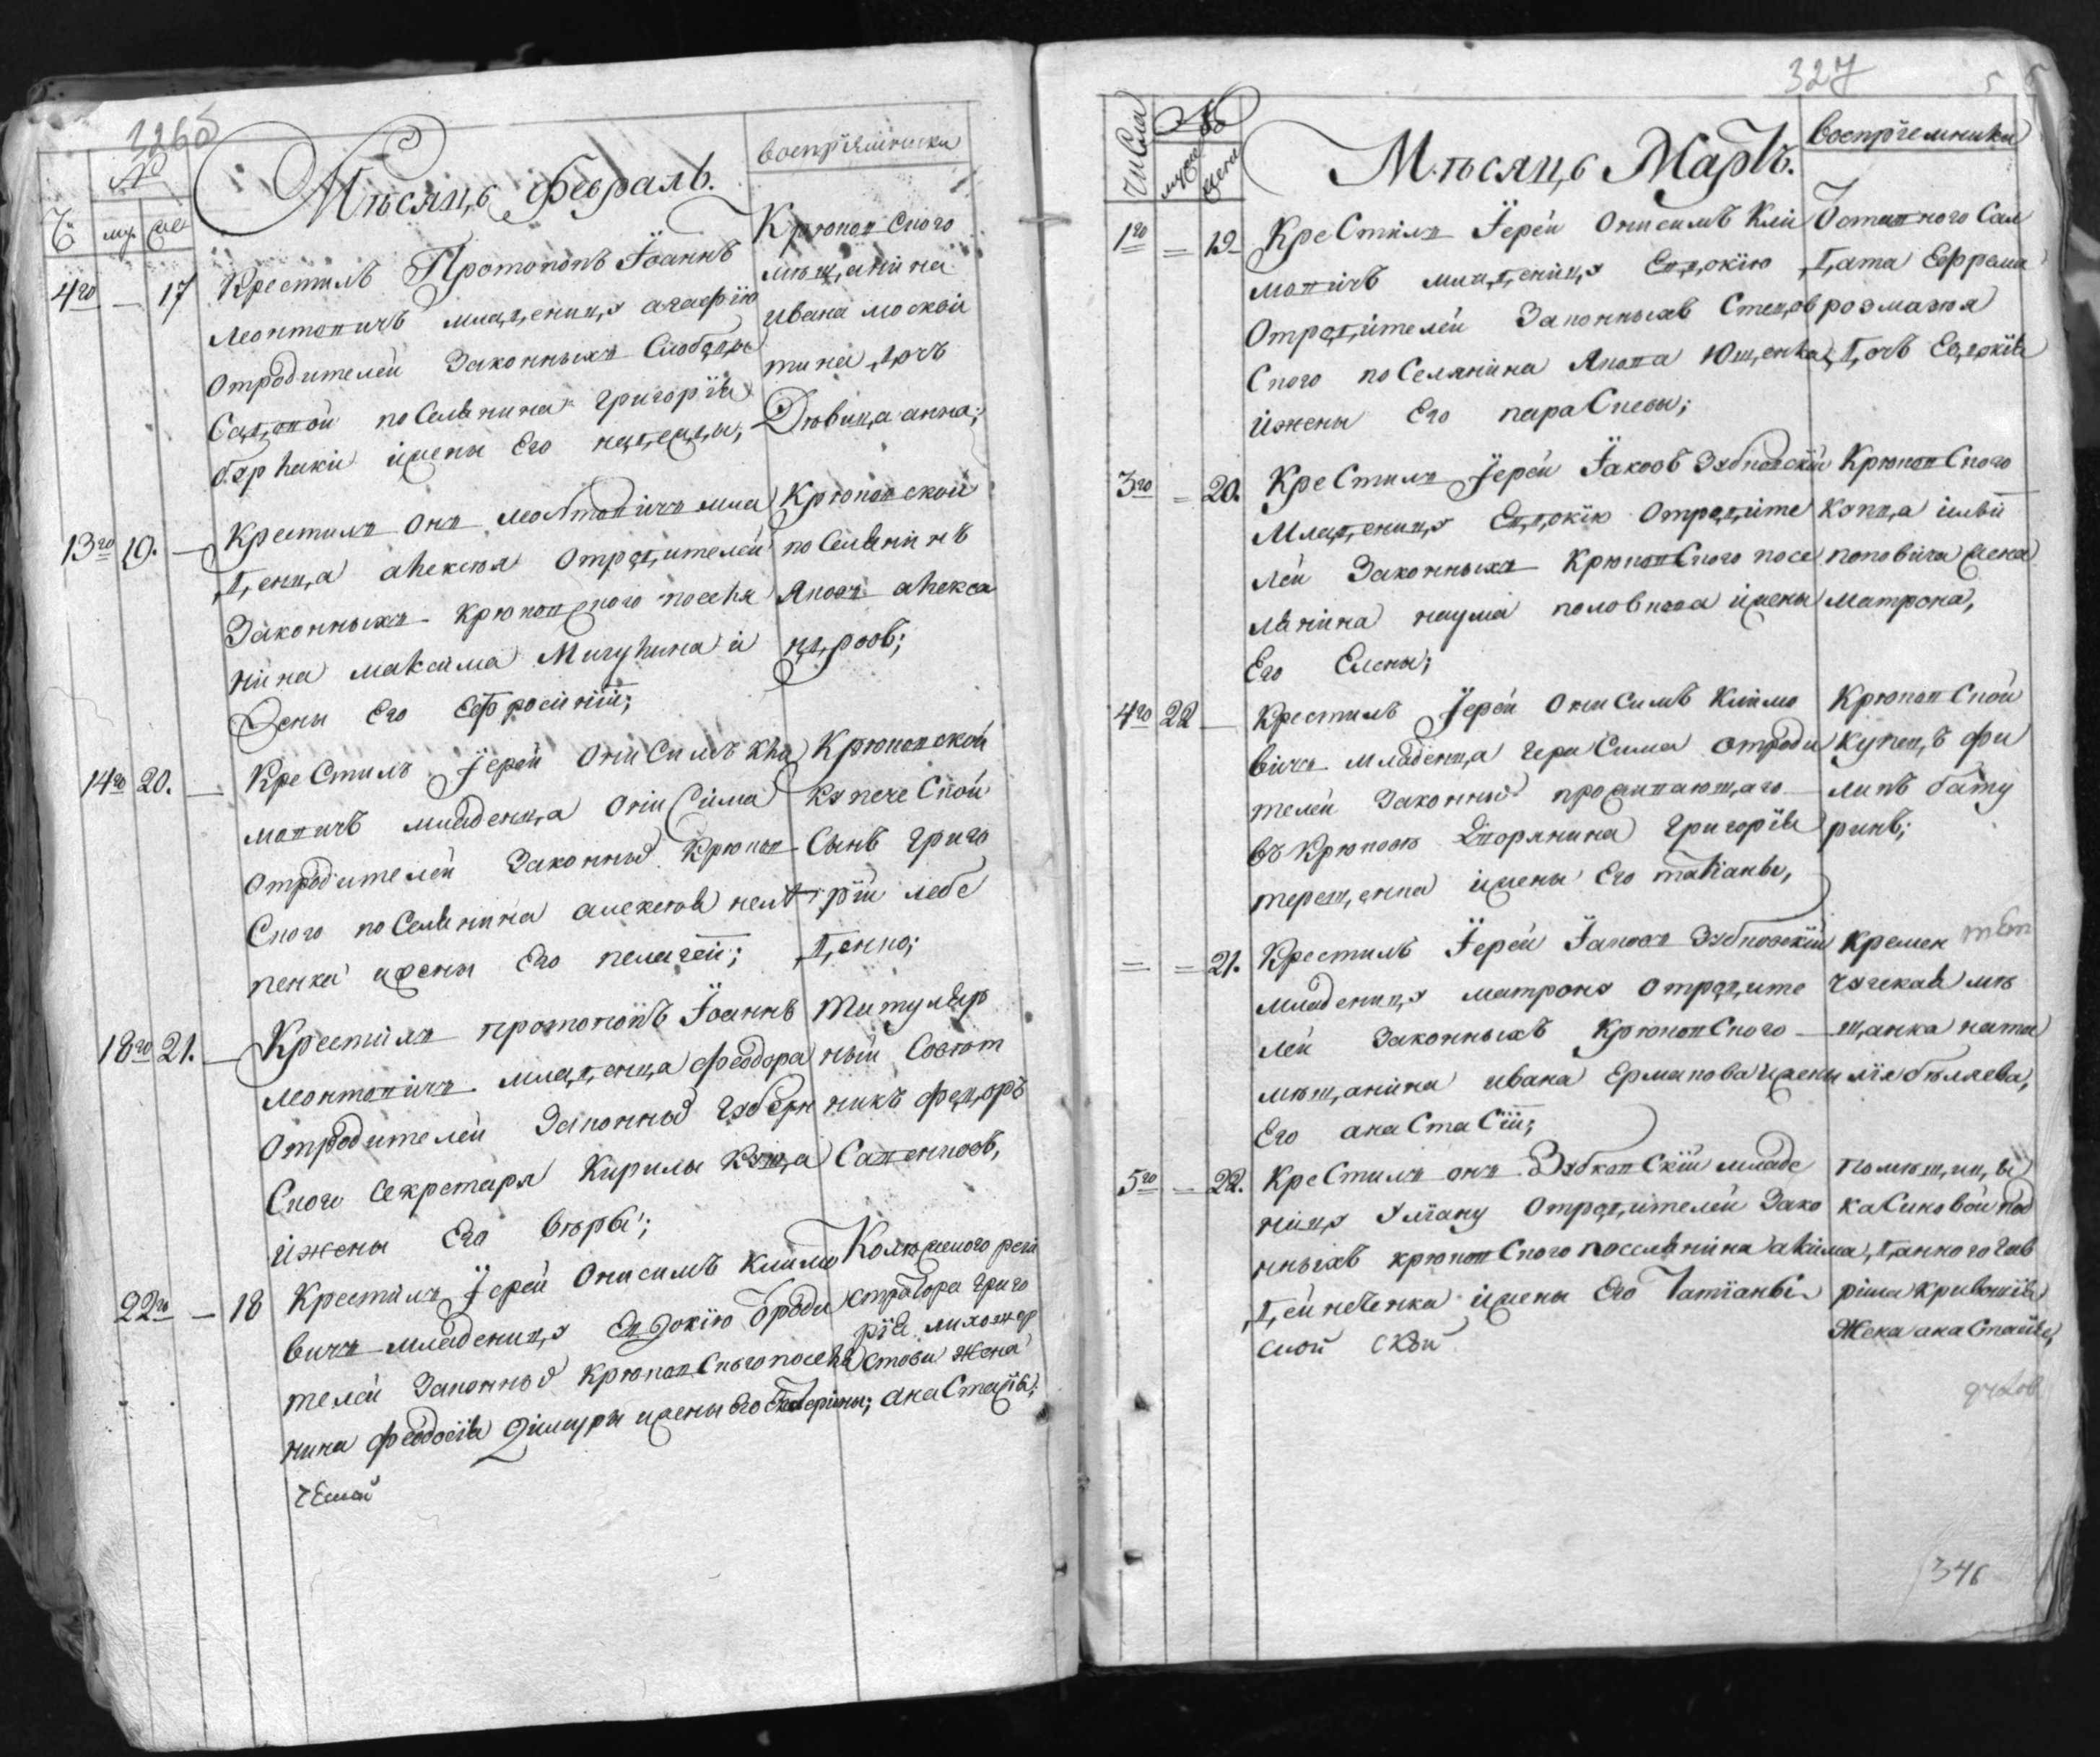 326об
№
Мѣсяцъ Февраль.
восприемники
Ч:
му. же
4го — 17
Крестилъ Протопопъ Іоаннъ
Леонтовичъ младеницу агафію
отродителей законныхъ Слободы
посел​янина григорія
іжены Его
Крюковского
мѣщанина
ивана москви
тина дочъ
Дѣвица анна;
13го 19. —
Крестилъ онъ Леонтовичъ мла
денца алексѣя отродителей
Законныхъ крюковского поселя
нина максима Мигулина и
жены Его Ефросиніи;
Крюковской
поселянинъ
Яковъ алекса
ндровъ;
14го 20. —
Крестилъ Іерей Онисимъ Кли
мовичъ младенца Онисима
отродителей Законныхъ Крюков
ского поселянина алексѣя
пенка іжены Его пелагеи;
Крюковской
купеческой
Сынъ григо
рій лебе
денко;
18го 21. —
Крестилъ протопопъ Іоаннъ
леонтовичъ младенца феодора
отродителей Законныхъ губерн
ского Секретаря Кирилы
іжены Его вѣры;
Титуляр
ный Совѣт
никъ федоръ
22го — 18
Крестилъ Іерей Онисимъ климо
вичъ младеницу Евдокію отроди
телей Законныхъ крюковского поселя
нина феодосія іжены Его Екатерины;
Колежского реги
стратора григо
рія
жена
анастасія;
327
5
Числа
№
мужи
жени
Мѣсяцъ Мартъ.
восприемники
1го = 19
Крестилъ Іерей Онисимъ Кли
мовичъ младеницу Евдокію
отродителей Законныхъ
ского поселянина Якова Ющенка
іжены Его параскевы;
Отставного Сал
дата Ефрема
розмазня
дочъ Евдокія
3го = 20.
Крестилъ Іерей Іаковъ Зубковскій
Младеницу Евдокію отродите
лей Законныхъ Крюковского посе
лянина наума половкова іжены
Его Елены;
Крюковского
купца ильи
поповича жена
матрона,
4го 22 —
Крестилъ Іерей Онисимъ Климо
вичъ младенца герасима отроди
телей Законныхъ проживающаго
въ Крюковѣ Дворянина григорія
терещенка іжены Его татіаны,
Крюковской
купецъ фи
липъ бату
ринъ;
= = 21.
Крестилъ Іерей Іаковъ Зубковскій
младеницу матрону отродите
лей Законныхъ Крюковского
мѣщанина ивана Ермакова іжены
Его анастасіи;
Кремен
чугская мѣ
щанка ната
лія бѣляева,
5го = 22.
Крестилъ онъ Зубковскій младе
ницу Уліану отродителей Зако
нныхъ крюковского поселянина акима
іжены Его Татіаны
помѣщицы
касиновой под
данного гав
рила кривошія
Жена анастасія,
346